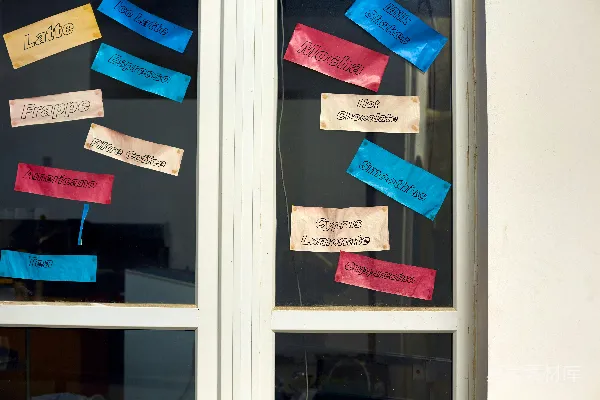 Latte
Ice Latte
Espresso
Frappe
Filtre Coffee
Americano
Tea
Milk
Shakes
Mocha
Hot
Chocolate
Smoothie
Cyprus
Lemonate
Cappuccino